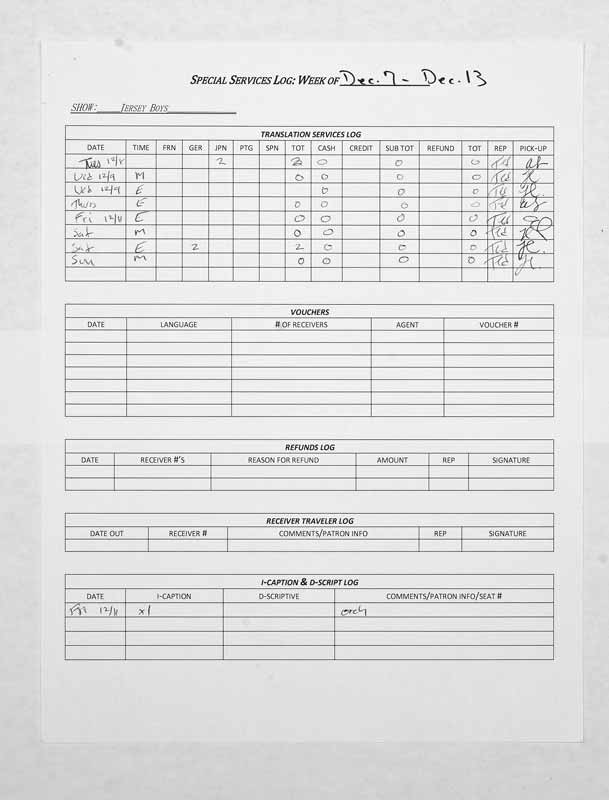 SPECIAL SERVICES LOG: WEEK OF Dec. 7 - Dec. 13
SHOW: JERSEY BOYS
TRANSLATION SERVICES LOG
DATE TIME FRN GER JPN PTG SPN TOT CASH CREDIT SUB TOT REFUND TOT REP PICK-UP
Tues 12/8 2 2 0 0 0 Td
Wed 12/9 M 0 0 0 0 Ted
Wed 12/9 E 0 0 0 Td
Thurs E 0 0 0 0 Td
Fri 12/11 E 0 0 0 0 Ted
Sat M 0 0 0 0 Ted
Sat E 2 2 0 0 0 Ted
Sun M 0 0 0 0 Ted
VOUCHERS
DATE LANGUAGE # OF RECEIVERS AGENT VOUCHER #
REFUNDS LOG
DATE RECEIVER #'S REASON FOR REFUND AMOUNT REP SIGNATURE
RECEIVER TRAVELER LOG
DATE OUT RECEIVER # COMMENTS/PATRON INFO REP SIGNATURE
I-CAPTION & D-SCRIPT LOG
DATE I-CAPTION D-SCRIPTIVE COMMENTS/PATRON INFO/SEAT #
Fri 12/11 x1 orch